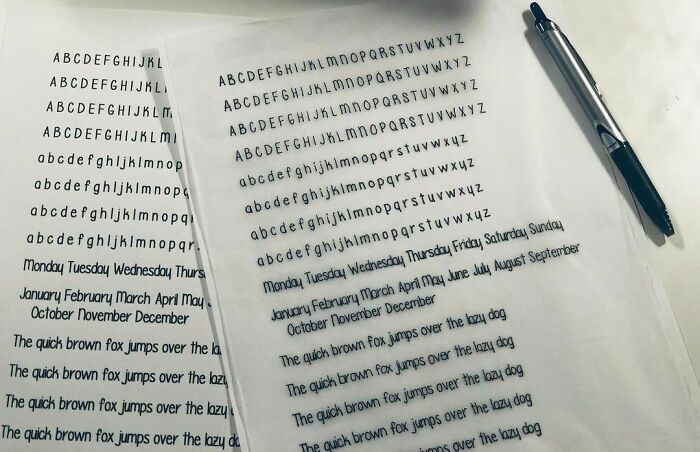 ABCDEFGHIJKL
ABCDEFGHIJKL
ABCDEFGHIJKL
ABCDEFGHIJKLM
abcdefghijklmnop
abcdefghijklmnopq
abcdefghijklmnopq
abcdefghijklmnopqr
Monday Tuesday Wednesday Thurs
January February March April May
October November December
The quick brown fox jumps over the la
The quick brown fox jumps over the lazy
The quick brown fox jumps over the lazy
The quick brown fox jumps over the lazy do
ABCDEFGHIJKLMNOPQRSTUVWXYZ
ABCDEFGHIJKLMNOPQRSTUVWXYZ
ABCDEFGHIJKLMNOPQRSTUVWXYZ
ABCDEFGHIJKLMNOPQRSTUVWXYZ
abcdefghijklmnopqrstuvwxyz
abcdefghijklmnopqrstuvwxyz
abcdefghijklmnopqrstuvwxyz
abcdefghijklmnopqrstuvwxyz
Monday Tuesday Wednesday Thursday Friday Saturday Sunday
January February March April May June July August September
October November December
The quick brown fox jumps over the lazy dog
The quick brown fox jumps over the lazy dog
The quick brown fox jumps over the lazy dog
The quick brown fox jumps over the lazy dog